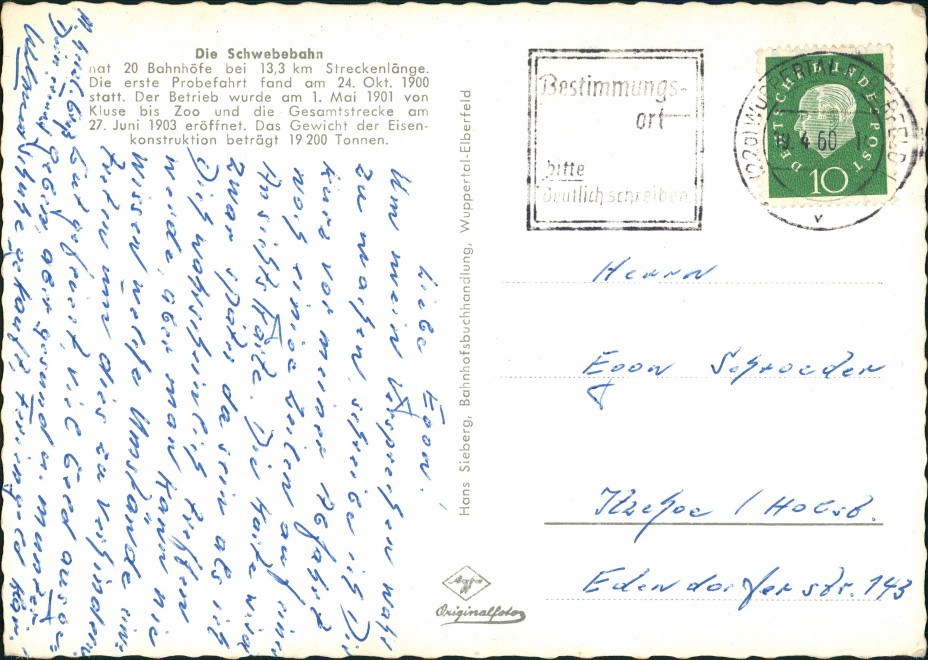 Die Schwebebahn
hat 20 Bahnhöfe bei 13,3 km Streckenlänge.
Die erste Probefahrt fand am 24. Okt. 1900
statt. Der Betrieb wurde am 1. Mai 1901 von
Kluse bis Zoo und die Gesamtstrecke am
27. Juni 1903 eröffnet. Das Gewicht der Eisen-
konstruktion beträgt 19 200 Tonnen.
Liebe Egon!
Um mein Versprechen wahr
zu machen, schreibe ich Dir
kurz vor meiner Abfahrt
noch einige Zeilen auf einer
Ansichtskarte. Die Karte wird
zwar später da sein als ich
Dich wahrscheinlich treffen
werde, aber man kann nie
wissen welche Umstände ein-
treten um dies zu verhindern.
gut gefeiert, viel Geld ausge-
geben, aber gesund u. munter.
Schuhe gekauft,
Hans Sieberg, Bahnhofsbuchhandlung, Wuppertal-Elberfeld
Agfa
Originalfoto
Bestimmungs-
ort
bitte
deutlich schreiben
(22a) WUPPERTAL-ELBERFELD
4.60
v
DEUTSCHE BUNDESPOST
10
Herrn
Egon Schroeder
Itzehoe / Holst.
Edendorferstr. 143